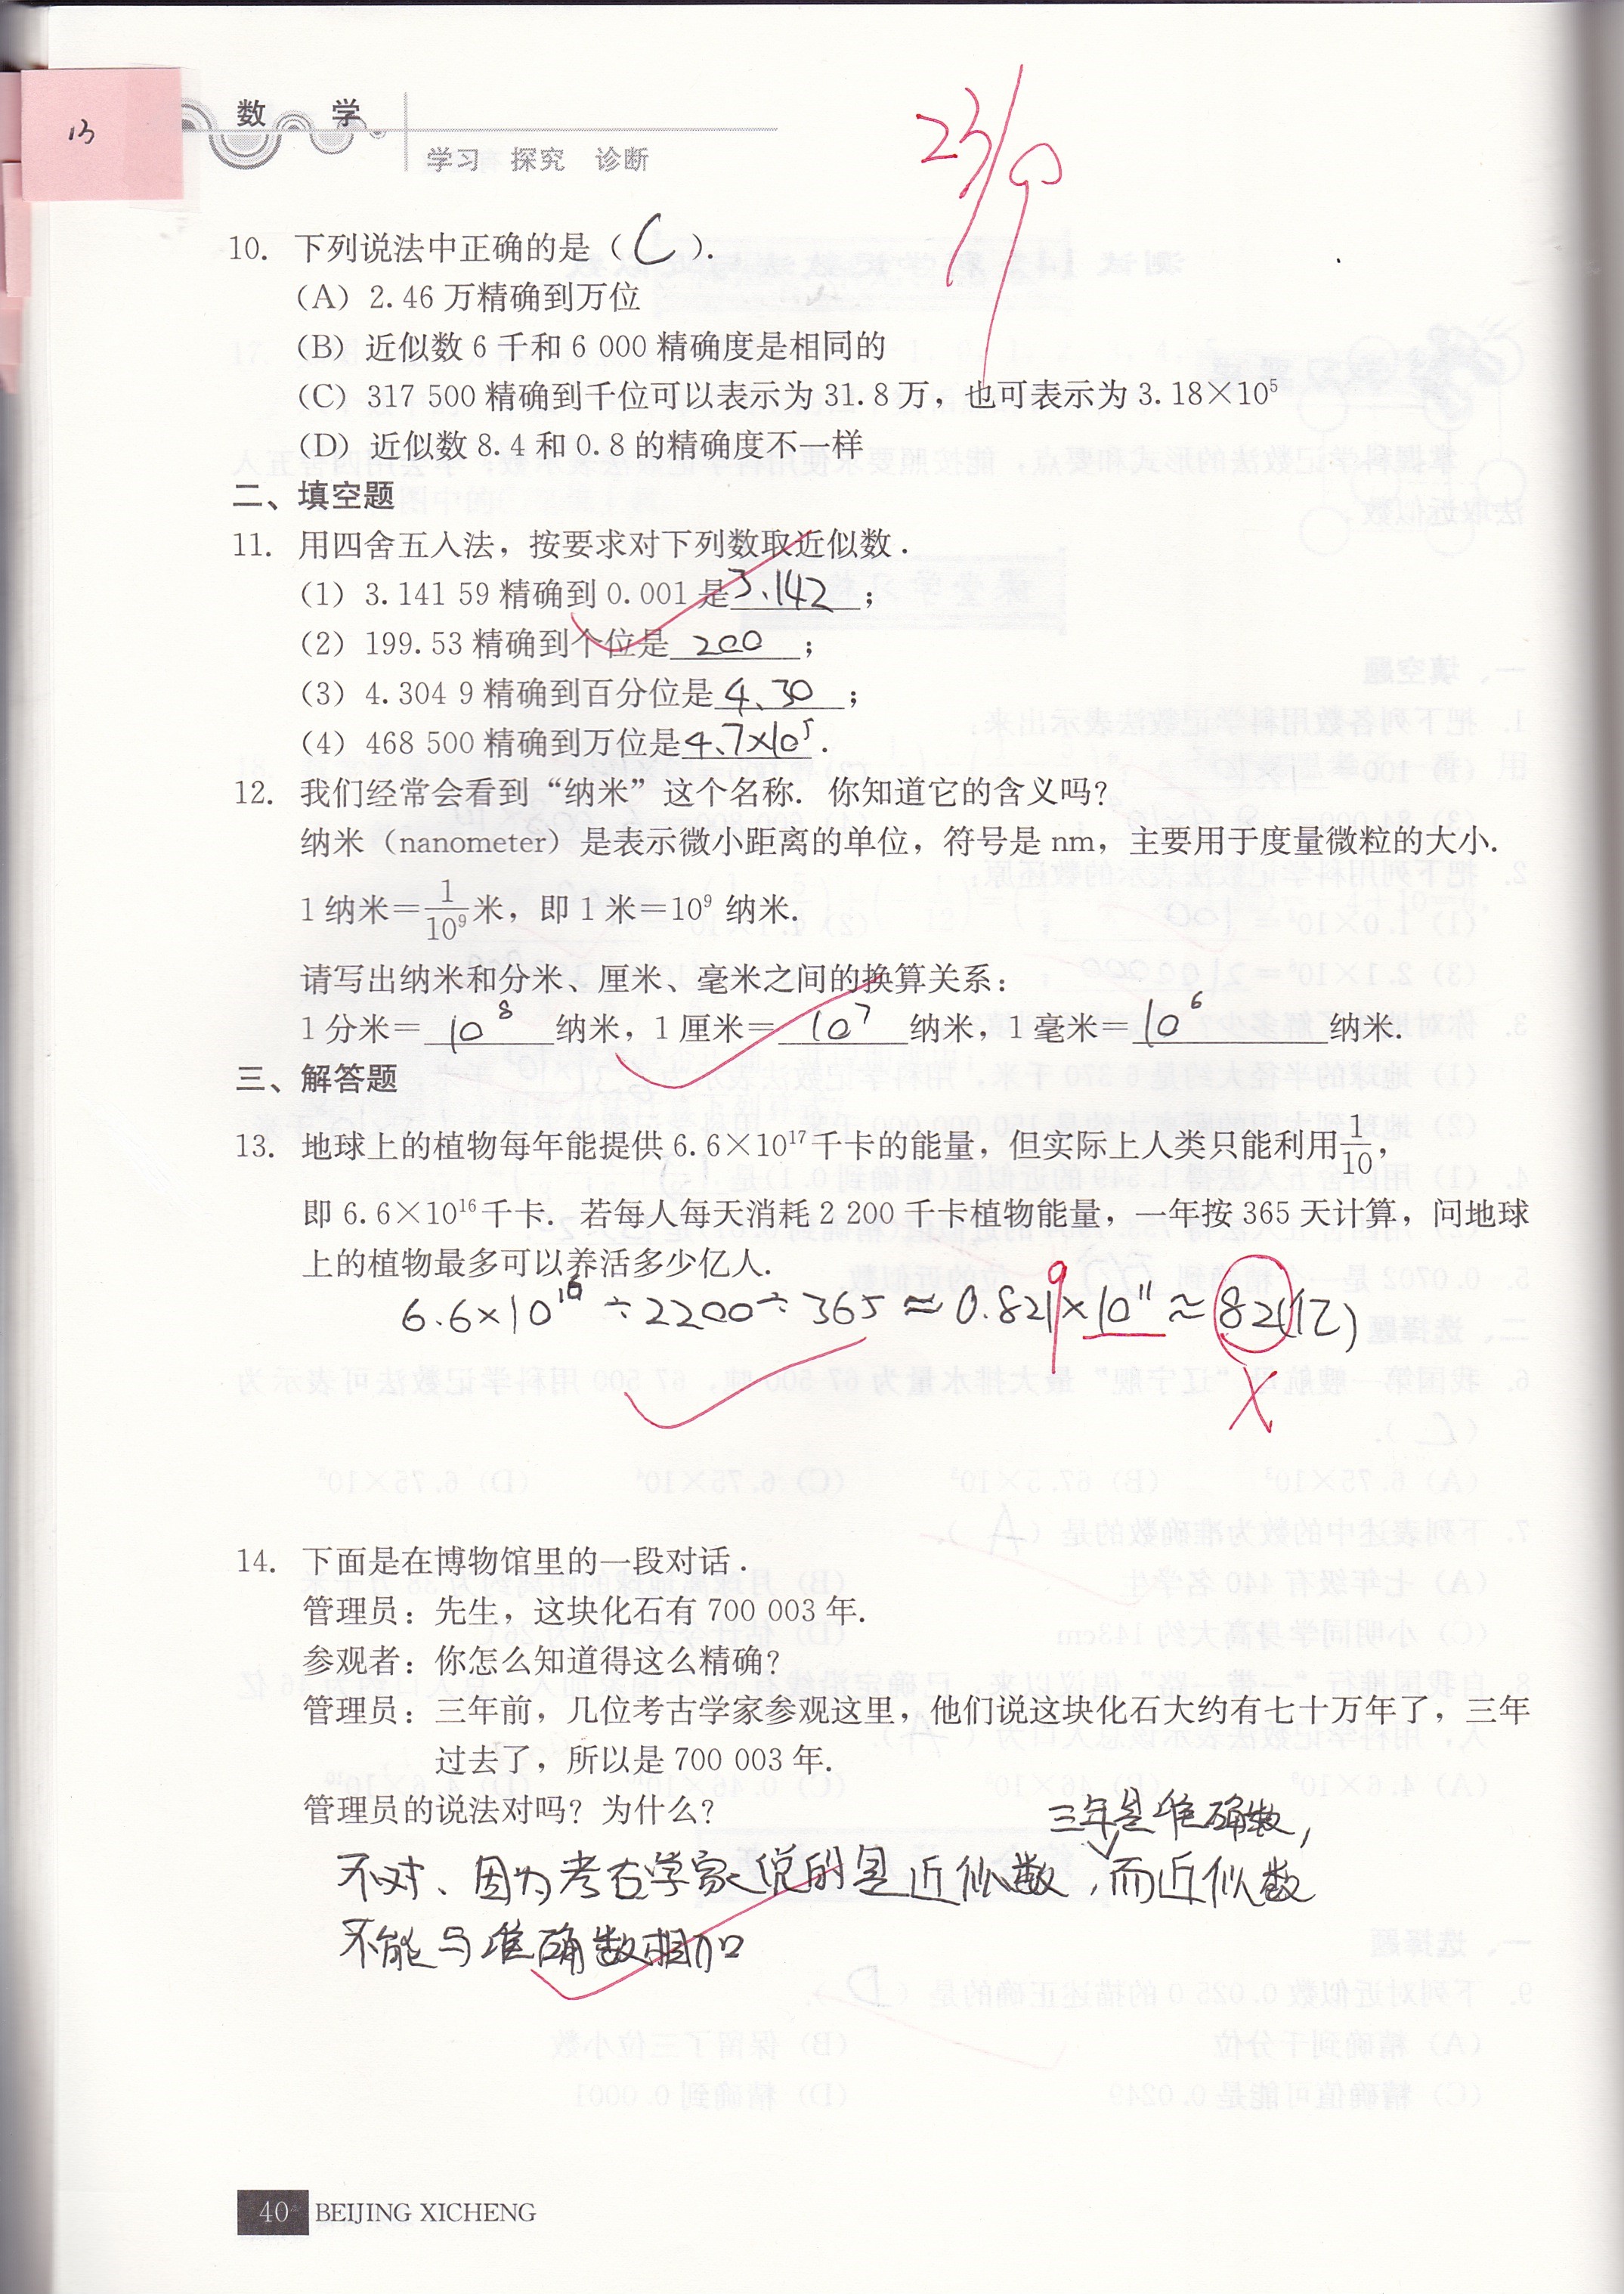 13
数 学
学习 探究 诊断
23/
10. 下列说法中正确的是（ C ）.
(A) 2.46 万精确到万位
(B) 近似数 6 千和 6 000 精确度是相同的
(C) 317 500 精确到千位可以表示为 31.8 万，也可表示为 3.18×10⁵
(D) 近似数 8.4 和 0.8 的精确度不一样
二、填空题
11. 用四舍五入法，按要求对下列数取近似数.
(1) 3.141 59 精确到 0.001 是 3.142 ；
(2) 199.53 精确到个位是 200 ；
(3) 4.304 9 精确到百分位是 4.30 ；
(4) 468 500 精确到万位是 4.7×10⁵ .
12. 我们经常会看到“纳米”这个名称. 你知道它的含义吗?
纳米（nanometer）是表示微小距离的单位，符号是 nm，主要用于度量微粒的大小.
1 纳米=1/10⁹ 米，即 1 米=10⁹ 纳米.
请写出纳米和分米、厘米、毫米之间的换算关系:
1 分米= 10⁸ 纳米，1 厘米= 10⁷ 纳米，1 毫米= 10⁶ 纳米.
三、解答题
13. 地球上的植物每年能提供 6.6×10¹⁷ 千卡的能量，但实际上人类只能利用 1/10，
即 6.6×10¹⁶ 千卡. 若每人每天消耗 2 200 千卡植物能量，一年按 365 天计算，问地球
上的植物最多可以养活多少亿人.
6.6×10¹⁶ ÷ 2200 ÷ 365 ≈ 0.821×10¹¹ ≈ 821(亿)
14. 下面是在博物馆里的一段对话.
管理员: 先生，这块化石有 700 003 年.
参观者: 你怎么知道得这么精确?
管理员: 三年前，几位考古学家参观这里，他们说这块化石大约有七十万年了，三年
过去了，所以是 700 003 年.
管理员的说法对吗? 为什么?
三年是准确数，
不对、因为考古学家说的是近似数，而近似数
不能与准确数相加
40 BEIJING XICHENG